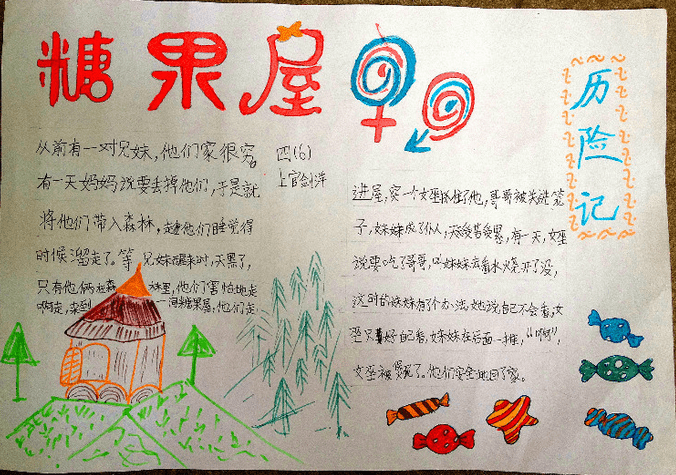 糖果屋
历险记
四(6)
上官剑洋
从前有一对兄妹,他们家很穷。
有一天妈妈说要丢掉他们,于是就
将他们带入森林,趁他们睡觉得
时候溜走了。等兄妹醒来时,天黑了,
只有他俩在森林里,他们害怕地走
啊走,来到一间糖果屋,他们走
进屋,突一个女巫抓住了他,哥哥被关进笼
子,妹妹成了仆人,天天受苦受累,有一天,女巫
说要吃了哥哥,叫妹妹去看水烧开了没,
这时的妹妹有了个办法,她说自己不会看,女
巫只好自己看,妹妹在后面一推,“啊”,
女巫被烫死了。他们安全地回了家。